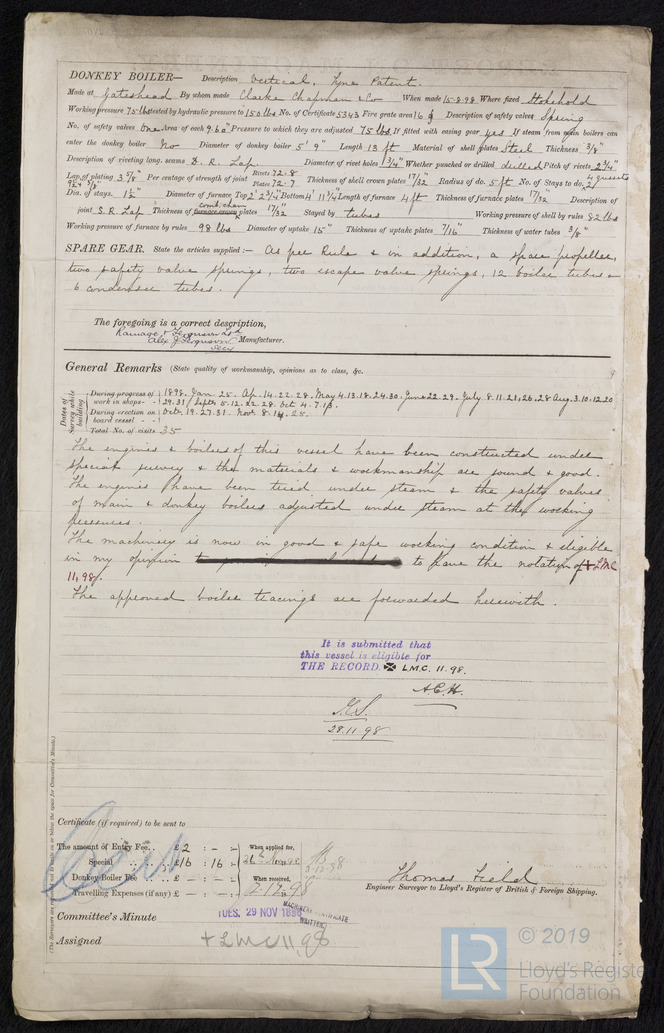 DONKEY BOILER— Description Vertical, Tyne Patent.
Made at Gateshead By whom made Clarke Chapman & Co When made 15.8.98 Where fixed Stokehold
Working pressure 75 lbs tested by hydraulic pressure to 150 lbs No. of Certificate 5343 Fire grate area 16 ф Description of safety valves Spring
No. of safety valves One Area of each 9.62" Pressure to which they are adjusted 75 lbs. If fitted with easing gear yes If steam from main boilers can
enter the donkey boiler No Diameter of donkey boiler 5' 9" Length 13 ft Material of shell plates Steel Thickness 3/8"
Description of riveting long. seams D. R. Lap. Diameter of rivet holes 13/4" Whether punched or drilled drilled Pitch of rivets 2 3/4"
Lap of plating 3 7/8" Per centage of strength of joint Rivets 72.8 Plates 72.7 Thickness of shell crown plates 17/32 Radius of do. 5 ft No. of Stays to do. 4 gussets
Dia. of stays. 1 1/2" Diameter of furnace Top 2' 2 3/4" Bottom 4' 11 3/4" Length of furnace 4 ft Thickness of furnace plates 17/32 Description of
joint S. R. Lap Thickness of furnace crown comb. cham plates 17/32 Stayed by tubes Working pressure of shell by rules 82 lbs
Working pressure of furnace by rules 98 lbs Diameter of uptake 15" Thickness of uptake plates 7/16" Thickness of water tubes 3/8"
SPARE GEAR. State the articles supplied :— As per Rule & in addition, a spare propeller,
two safety valve springs, two escape valve springs, 12 boiler tubes &
6 condenser tubes.
The foregoing is a correct description,
Ramage & Ferguson Ltd
Alex J Ferguson Manufacturer.
Secy
General Remarks (State quality of workmanship, opinions as to class, &c.
9
Dates of Survey while building
During progress of work in shops - - 1898. Jan. 25. Ap. 14. 22. 28. May 4. 13. 18. 24. 30. June 22. 29. July 8. 11. 21. 26. 28 Aug. 3. 10. 12. 20
29. 31. Septr 5. 12. 22. 28. Oct 4. 7. 13.
During erection on board vessel - - - Octr. 19. 27. 31. Nov. 8. 14. 25.
Total No. of visits 35
The engines & boilers of this vessel have been constructed under
special survey & the materials & workmanship are sound & good.
The engines have been tried under steam & the safety valves
of main & donkey boilers adjusted under steam at the working
pressures.
The machinery is now in good & safe working condition & eligible
in my opinion to have the notation of + LMC
11,98.
The approved boiler tracings are forwarded herewith.
It is submitted that
this vessel is eligible for
THE RECORD. + L.M.C. 11.98.
A.C.H.
28.11.98
(The Surveyors are requested not to write on or below the space for Committee's Minute.)
Certificate (if required) to be sent to
The amount of Entry Fee. . £ 2 : - : - When applied for,
Special . . £ 16 : 16 : -
Donkey Boiler Fee . . £ — : — : — When received,
Travelling Expenses (if any) £ — : — : — 2.12.98
Thomas Field
Engineer Surveyor to Lloyd's Register of British & Foreign Shipping.
Committee's Minute TUES. 29 NOV 1898
MACHINERY CERTIFICATE
WRITTEN
Assigned + LMC 11,98
LR © 2019
Lloyd's Register
Foundation